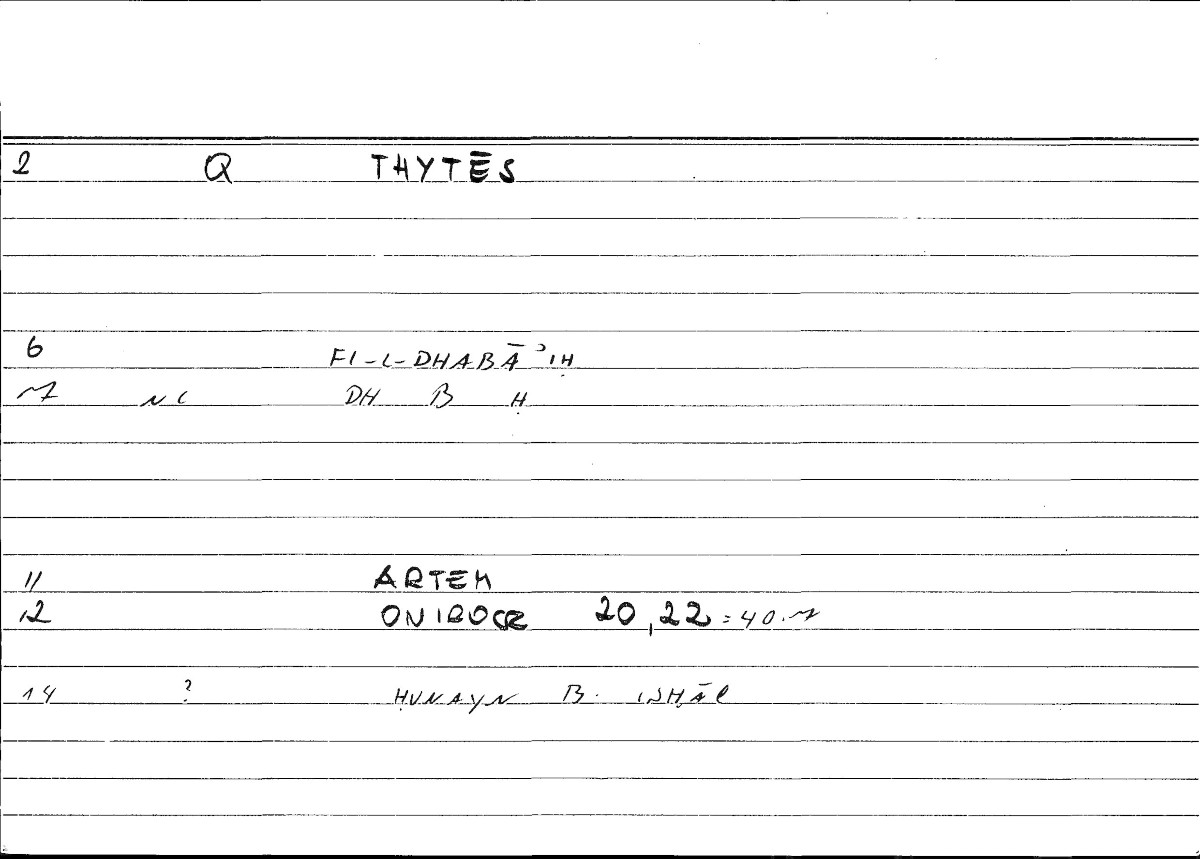 2 Q THYTĒS
6 FI-L-DHABĀʾIḤ
7 NC DH B Ḥ
11 ARTEM
12 ONIROCR 20,22 = 40.7
14 ? ḤUNAYN B. ISḤĀQ